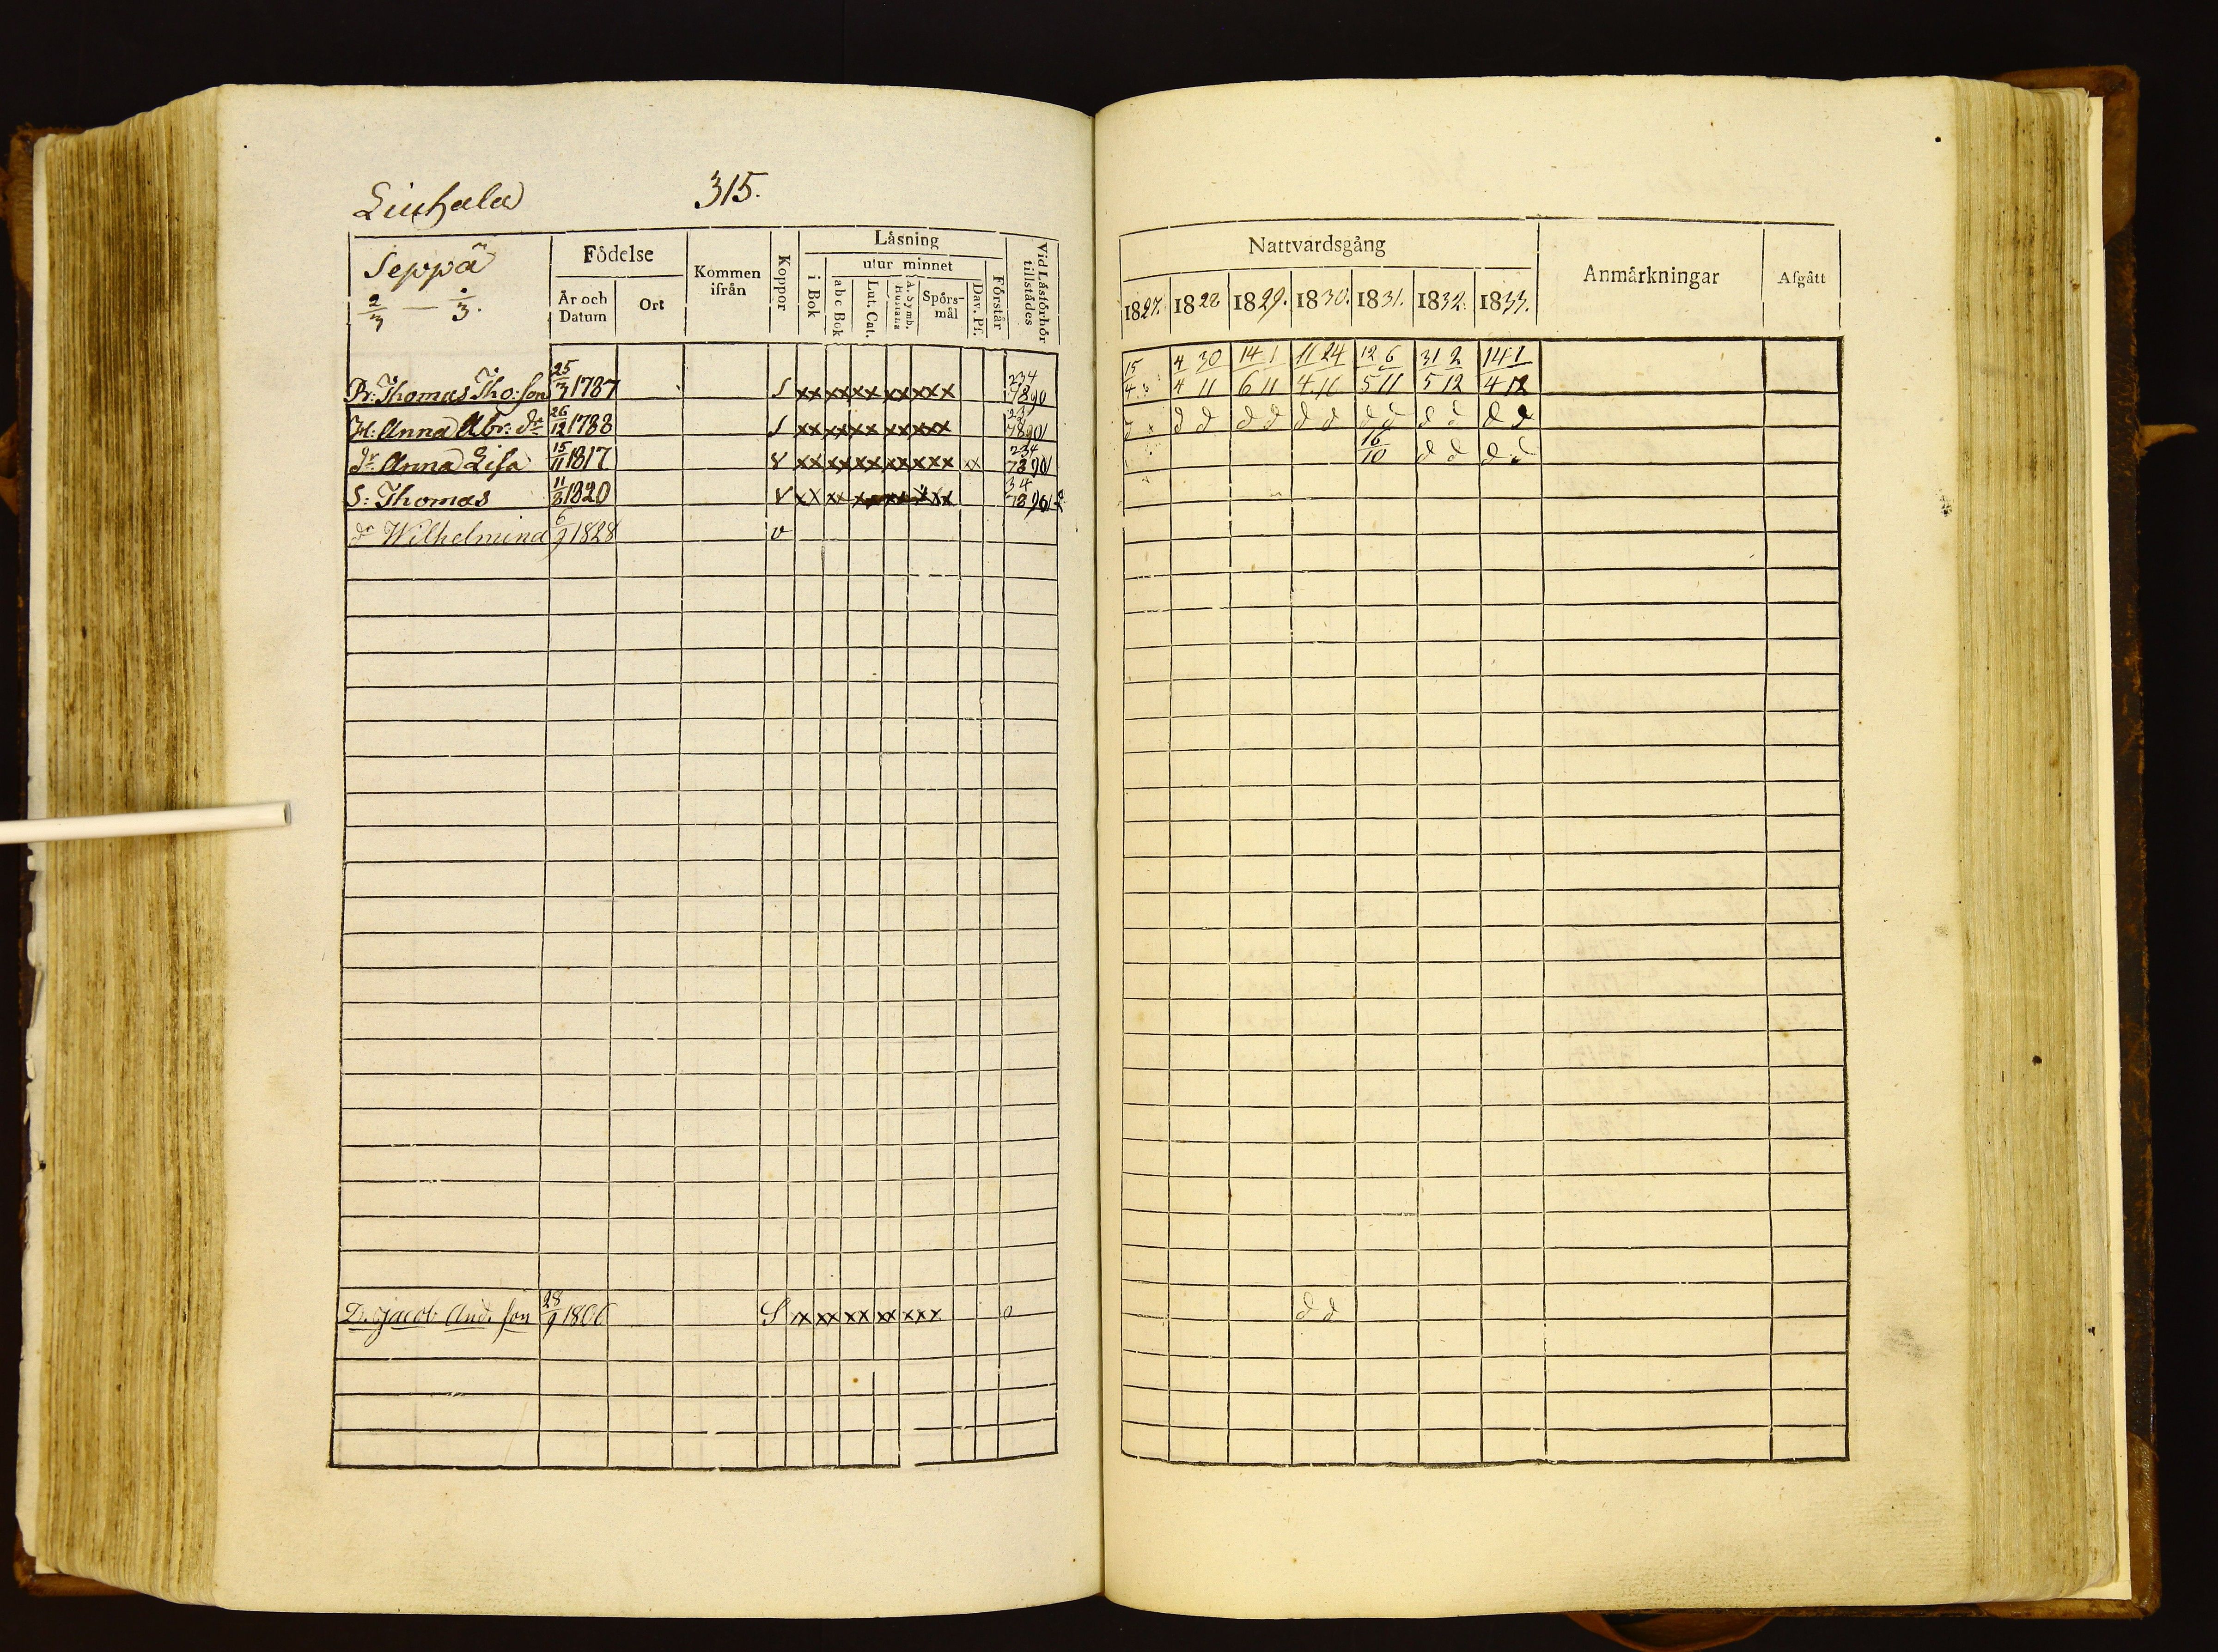 Liuhala 315.
Seppä
2/3 — 2/3.
Födelse
År och Datum
Ort
Kommen ifrån
Koppor
Läsning
i Bok
utur minnet
abc Bok
Lut. Cat.
Spörsmål
Dav. Ps.
Förstår
Vid Läsförhör tillstädes
Pr: Thomas Tho: son 25/3 1787 S xx xx xx xx xxx 234 7890
H: Anna Abr: dr 26/12 1788 S xx xx xx xx xxx 234 78901
dr Anna Lisa 15/11 1817 V xx xx xx xx xxx xx 234 78901
S: Thomas 11/3 1820 V xx xx xx xx xxx 34 789012
dr Wilhelmina 6/9 1828 v
D. Jacob And. son 28/9 1806 S xx xx xx xx xxx 0
Nattvardsgång
Anmärkningar
Afgått
1827. 1828 1829. 1830. 1831. 1832. 1833.
15/4 4/4 30/11 14/6 1/11 11/4 24/10 12/5 6/11 31/5 2/12 14/4 1/12
d d d d d d d d d d d d d
16/10 d d d d
d d